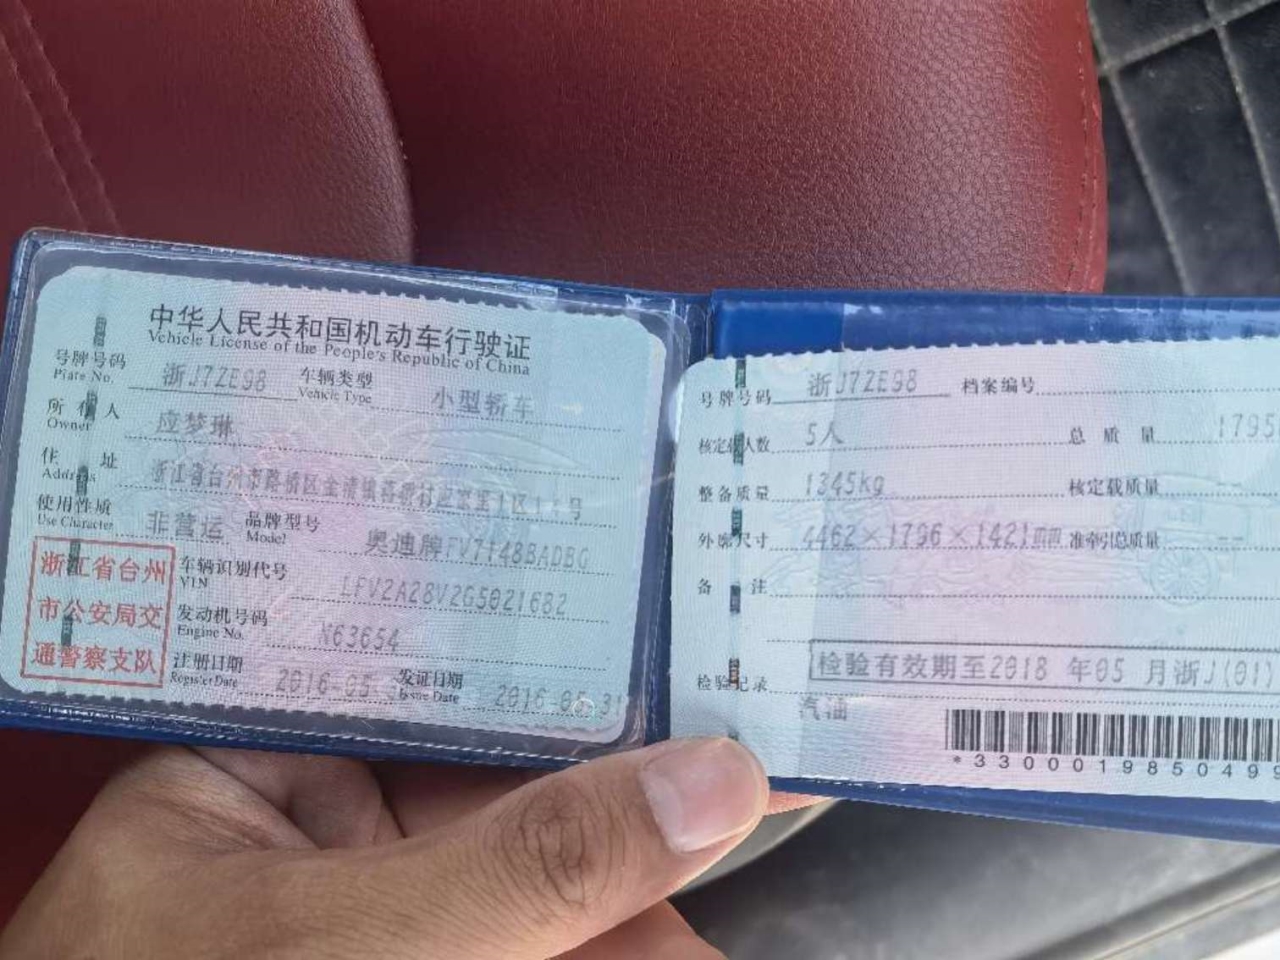 中华人民共和国机动车行驶证
Vehicle License of the People's Republic of China
号牌号码 浙J7ZE98 车辆类型 小型轿车
Plate No. Vehicle Type
所有人 应梦琳
Owner
住址 浙江省台州市路桥区金清镇
Address
使用性质 非营运 品牌型号 奥迪牌FV7148BADBG
Use Character Model
浙江省台州
市公安局交
通警察支队
车辆识别代号 LFV2A28V2G5021682
VIN
发动机号码 N63654
Engine No.
注册日期 2016-05-3 发证日期 2016-05-31
Register Date Issue Date
号牌号码 浙J7ZE98 档案编号
核定载人数 5人 总质量 1795
整备质量 1345kg 核定载质量 --
外廓尺寸 4462×1796×1421mm 准牵引总质量 --
备注
检验记录 检验有效期至2018 年05 月浙J(01)
汽油
*330001985049